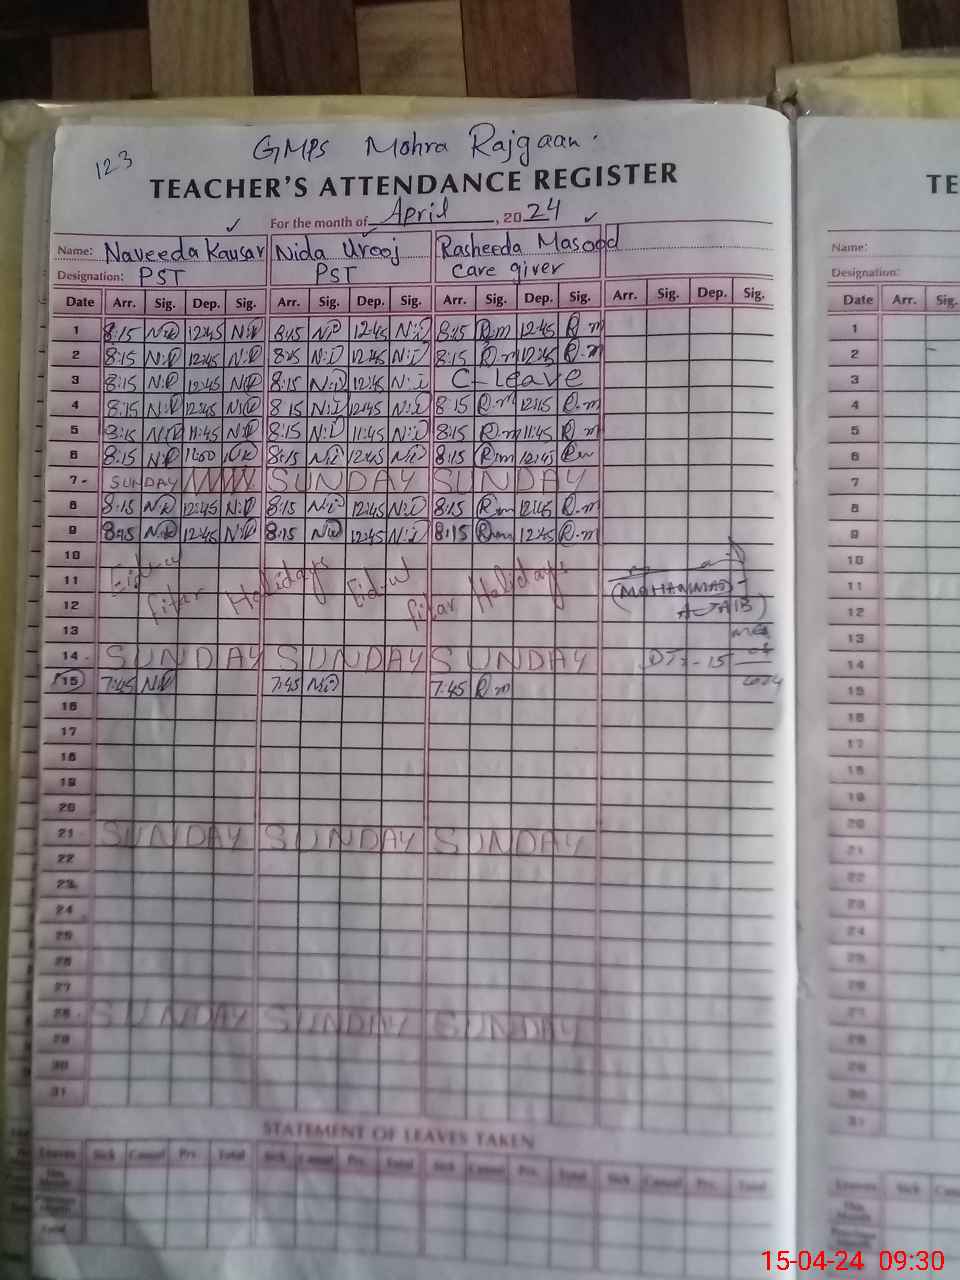 123
GMPS Mohra Rajgaan.
TEACHER'S ATTENDANCE REGISTER
For the month of April, 2024
Name: Naveeda Kausar Nida Urooj Rasheeda Masood
Designation: PST PST Care giver
Date Arr. Sig. Dep. Sig. Arr. Sig. Dep. Sig. Arr. Sig. Dep. Sig. Arr. Sig. Dep. Sig.
1 8:15 12:45 8:15 12:45 N:i 8:15 R.m 12:45 R.m
2 8:15 12:45 8:15 12:45 N:i 8:15 R.m 12:45 R.m
3 8:15 12:45 8:15 12:45 N:i C-Leave
4 8:15 12:45 8:15 N:i 12:45 N:i 8:15 R.m 12:15 R.m
5 8:15 11:45 8:15 N:i 11:45 N:i 8:15 R.m 11:45 R.m
6 8:15 8:15 N:i 12:45 N:i 8:15 R.m 12:45
7 SUNDAY SUNDAY SUNDAY
8 8:15 12:45 8:15 N:i 12:45 N:i 8:15 R.m 12:45 R.m
9 8:15 12:45 8:15 12:45 N:i 8:15 R.m 12:45 R.m
10
11 Eidul Fitar Holidays Eidul Fitar Holidays (MOHAMMAD
12 AJAIB)
13
14 SUNDAY SUNDAY SUNDAY DT:-15
15 7:45 7:45 7:45 R.m 2024
16
17
18
19
20
21 SUNDAY SUNDAY SUNDAY
22
23
24
25
26
27
28 SUNDAY SUNDAY SUNDAY
29
30
31
STATEMENT OF LEAVES TAKEN
Leaves Sick Casual Prv. Total Sick Casual Prv. Total Sick Casual Prv. Total Sick Casual Prv. Total
Total
TE
Name:
Designation:
Date Arr. Sig.
1
2
3
4
5
6
7
8
9
10
11
12
13
14
15
16
17
18
19
20
21
22
23
24
25
26
27
28
29
30
31
Leaves Sick
15-04-24 09:30